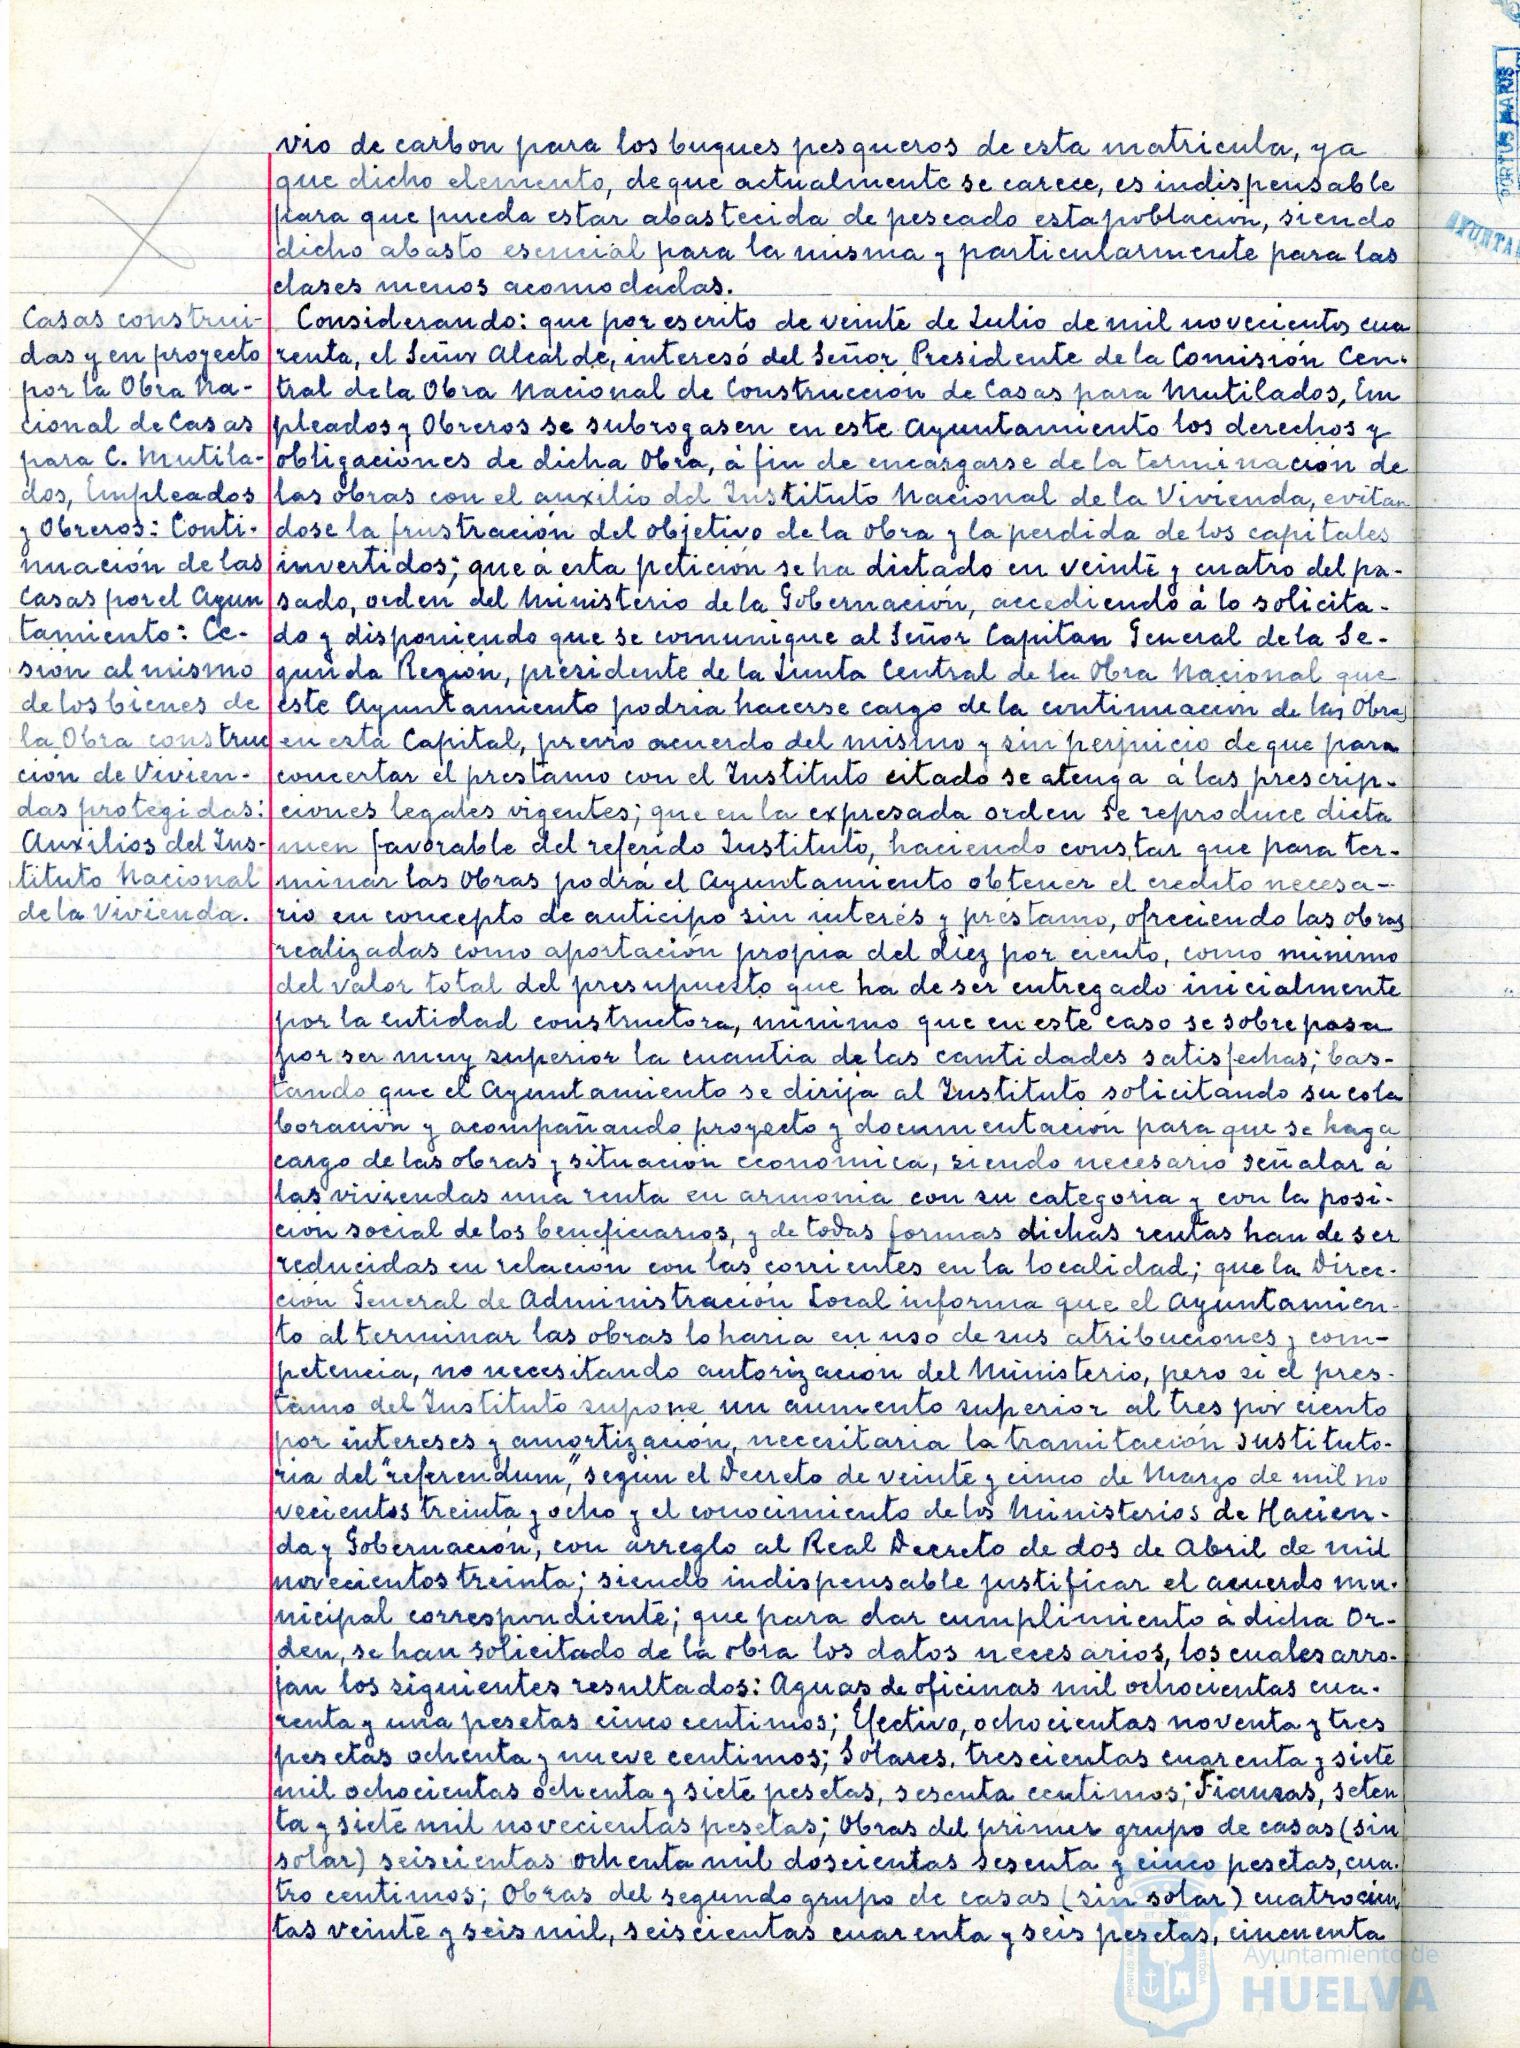 vio de carbon para los buques pesqueros de esta matricula, ya
que dicho elemento, de que actualmente se carece, es indispensable
para que pueda estar abastecida de pescado esta población, siendo
dicho abasto esencial para la misma y particularmente para las
clases menos acomodadas.
Casas construi-
das y en proyecto
por la Obra Na-
cional de Casas
para C. Mutila-
dos, Empleados
y Obreros: Conti-
nuación de las
Casas por el Ayun
tamiento: Ce-
sión al mismo
de los bienes de
la Obra construc
ción de Vivien-
das protegidas:
Auxilios del Ins-
tituto Nacional
de la Vivienda.
Considerando: que por escrito de veinte de Julio de mil novecientos cua
renta, el Señor Alcalde, interesó del Señor Presidente de la Comisión Cen-
tral de la Obra Nacional de Construcción de Casas para Mutilados, Em
pleados y Obreros se subrogasen en este Ayuntamiento los derechos y
obligaciones de dicha Obra, á fin de encargarse de la terminación de
las obras con el auxilio del Instituto Nacional de la Vivienda, evitan
dose la frustración del objetivo de la obra y la perdida de los capitales
invertidos; que á esta petición se ha dictado en veinte y cuatro del pa-
sado, orden del Ministerio de la Gobernación, accediendo á lo solicita-
do y disponiendo que se comunique al Señor Capitan General de la Se-
gunda Región, presidente de la Junta Central de la Obra Nacional que
este Ayuntamiento podria hacerse cargo de la continuación de las Obras
en esta Capital, previo acuerdo del mismo y sin perjuicio de que para
concertar el prestamo con el Instituto citado se atenga á las prescrip-
ciones legales vigentes; que en la expresada orden se reproduce dicta
men favorable del referido Instituto, haciendo constar que para ter-
minar las Obras podrá el Ayuntamiento obtener el credito necesa-
rio en concepto de anticipo sin interés y préstamo, ofreciendo las obras
realizadas como aportación propia del diez por ciento, como minimo
del valor total del presupuesto que ha de ser entregado inicialmente
por la entidad constructora, minimo que en este caso se sobrepasa
por ser muy superior la cuantia de las cantidades satisfechas; bas-
tando que el Ayuntamiento se dirija al Instituto solicitando su cola
boración y acompañando proyecto y documentación para que se haga
cargo de las obras y situación economica, siendo necesario señalar á
las viviendas una renta en armonia con su categoria y con la posi-
ción social de los beneficiarios, y de todas formas dichas rentas han de ser
reducidas en relación con las corrientes en la localidad; que la Direc-
ción General de Administración Local informa que el Ayuntamien-
to al terminar las obras lo haria en uso de sus atribuciones y com-
petencia, no necesitando autorización del Ministerio, pero si el pres-
tamo del Instituto supone un aumento superior al tres por ciento
por intereses y amortización, necesitaria la tramitación sustituto-
ria del "referendum", según el Decreto de veinte y cinco de Marzo de mil no
vecientos treinta y ocho y el conocimiento de los Ministerios de Hacien-
da y Gobernación, con arreglo al Real Decreto de dos de Abril de mil
novecientos treinta; siendo indispensable justificar el acuerdo mu-
nicipal correspondiente; que para dar cumplimiento á dicha Or-
den, se han solicitado de la obra los datos necesarios, los cuales arro-
jan los siguientes resultados: Aguas de oficinas mil ochocientas cua-
renta y una pesetas cinco centimos; Efectivo, ochocientas noventa y tres
pesetas ochenta y nueve centimos; Solares, trescientas cuarenta y siete
mil ochocientas ochenta y siete pesetas, sesenta centimos; Fianzas, seten
ta y siete mil novecientas pesetas; Obras del primer grupo de casas (sin
solar) seiscientas ochenta mil doscientas sesenta y cinco pesetas, cua-
tro centimos; Obras del segundo grupo de casas (sin solar) cuatrocien
tas veinte y seis mil, seiscientas cuarenta y seis pesetas, cincuenta
Ayuntamiento de
HUELVA